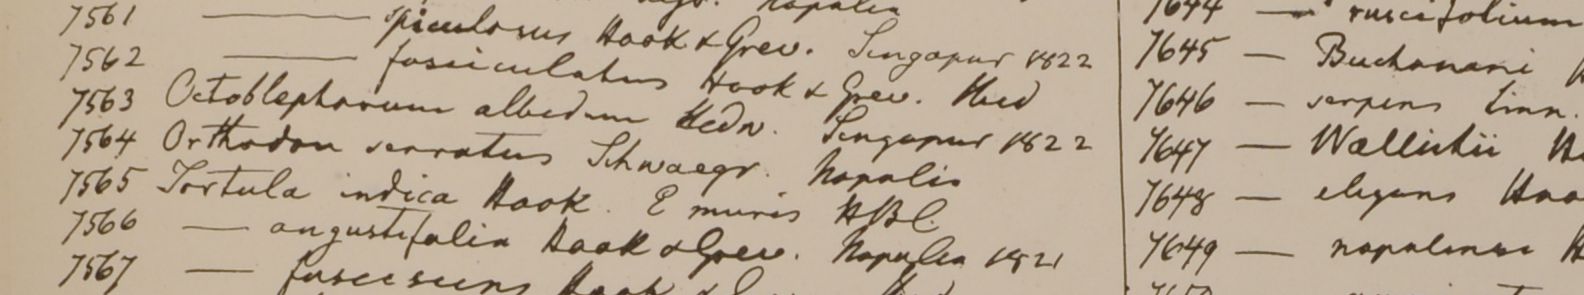 7561 — spiculosus Hook & Grev. Singapur 1822
7562 — fasciculatus Hook & Grev.
7563 Octoblepharum albidum Hedw. Singapur 1822
7564 Orthodon serratus Schwaegr. Napalia
7565 Tortula indica Hook. E muris HBC.
7566 — angustifolia Hook & Grev. Napalia 1821
7567 — fuscescens Hook &
7644 — ruscifolium
7645 — Buchanani
7646 — serpens Linn.
7647 — Wallichii
7648 — elegans Hoo
7649 — napalense